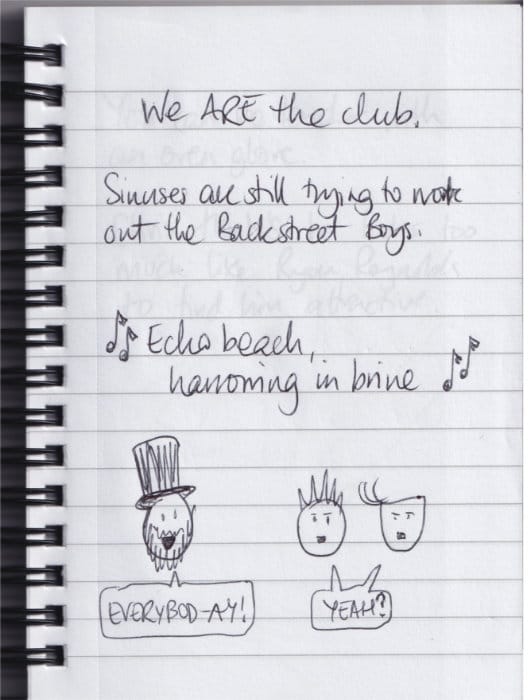 We ARE the club.
Sinuses are still trying to work
out the Backstreet Boys.
Echo beach,
in brine
EVERYBOD-AY!
YEAH?